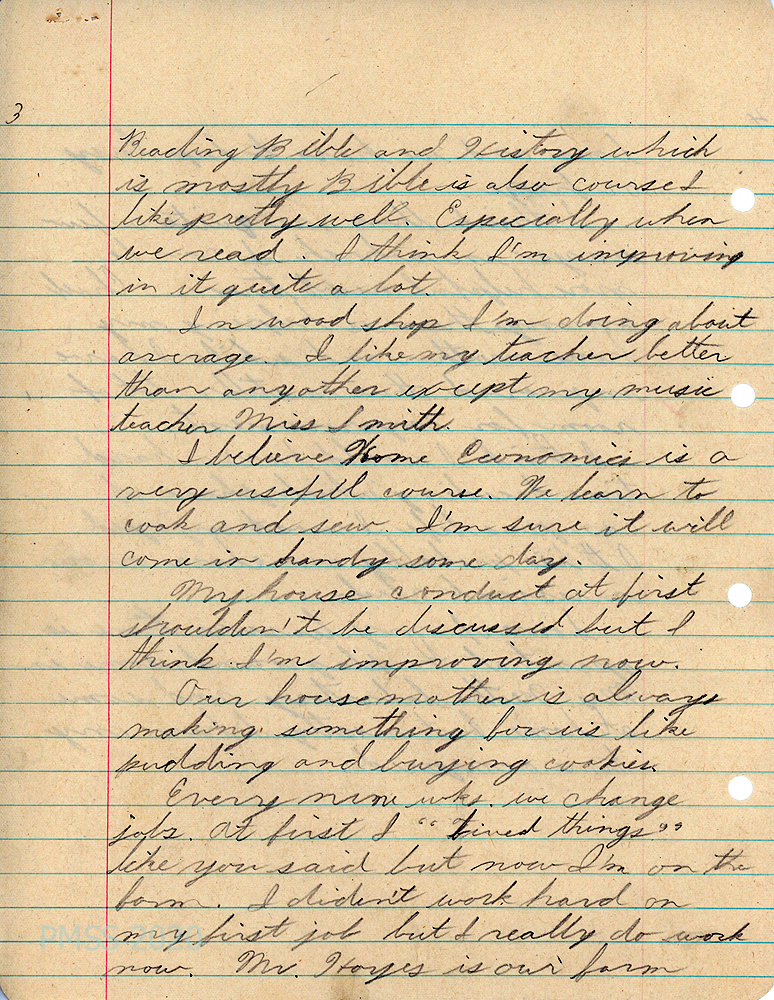 3
Reading Bible and History which
is mostly Bible is also course I
like pretty well. Especially when
we read. I think I'm improving
in it quite a lot.
In wood shop I'm doing about
average. I like my teacher better
than any other except my music
teacher Miss Smith.
I believe Home Economics is a
very usefill course. We learn to
cook and sew. I'm sure it will
come in handy some day.
My house conduct at first
shrouldin't be discussed but I
think I'm improving now.
Our housemother is always
making something for us like
pudding and buying cookies.
Every nine wks. we change
jobs. At first I "tired things"
like you said but now I'm on the
farm. I diden't work hard on
my first job but I really do work
now. Mr. Hayes is our farm